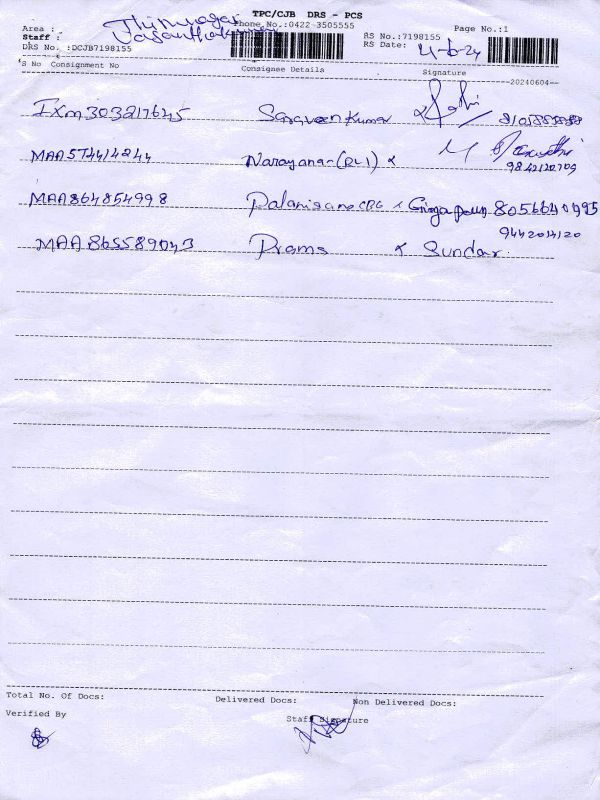 TPC/CJB DRS - PCS
Area : Thirunagar Phone No.:0422-3505555 Page No.:1
Staff : RS No.:7198155
DRS No. :DCJB7198155 RS Date: 4-6-24
S No Consignment No Consignee Details Signature --20240604--
IXM303217645 Saravanan Kumar
MAA577414244 Narayana-(DL1) x 9842120709
MAA864854998 Palanisamo CBG x 8056640995
MAA865589043 Prams x Sundar. 9442014120
Total No. Of Docs: Delivered Docs: Non Delivered Docs:
Verified By Staff Signature